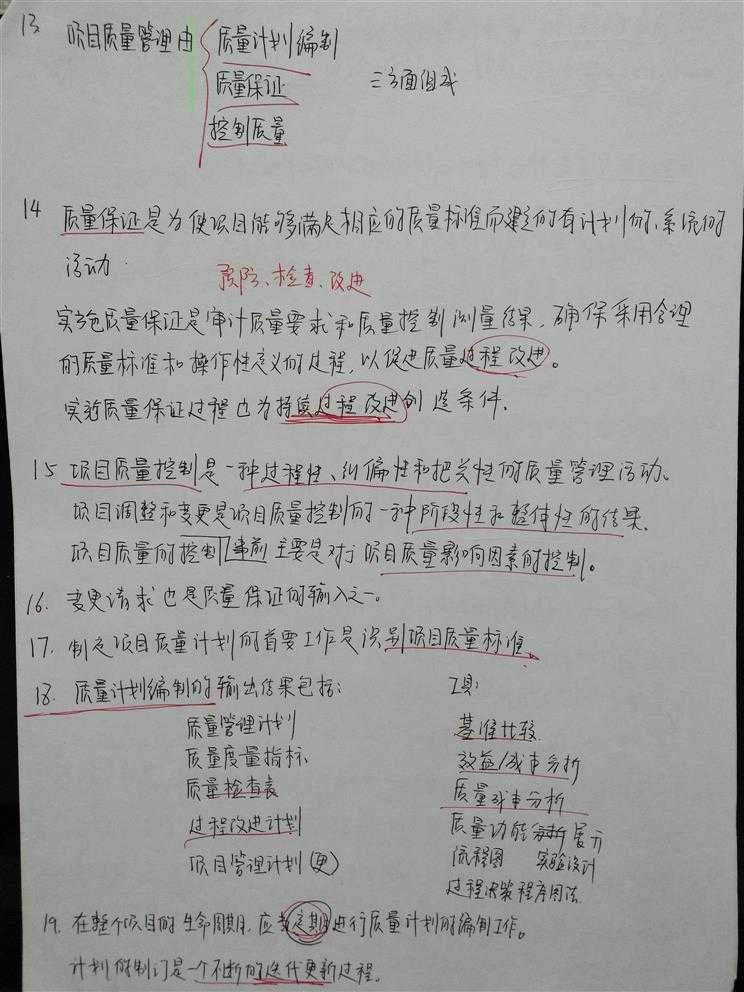 13 项目质量管理由 质量计划编制
质量保证 三方面组成
控制质量
14 质量保证是为使项目能够满足相应的质量标准而建立的有计划的、系统的
活动.
预防、检查、改进
实施质量保证是审计质量要求和质量控制测量结果,确保采用合理
的质量标准和操作性定义的过程,以促进质量过程改进。
实施质量保证过程也为持续过程改进创造条件.
15 项目质量控制是一种过程性、纠偏性和把关性的质量管理活动。
项目调整和变更是项目质量控制的一种阶段性和整体性的结果.
项目质量的控制事前主要是对于项目质量影响因素的控制。
16. 变更请求也是质量保证的输入之一。
17. 制定项目质量计划的首要工作是识别项目质量标准.
18. 质量计划编制的输出结果包括: 工具:
质量管理计划 基准比较
质量度量指标 效益/成本分析
质量检查表 质量成本分析
过程改进计划 质量功能展开
项目管理计划(更) 流程图 实验设计
过程决策程序图法
19. 在整个项目的生命周期,应当定期进行质量计划的编制工作。
计划的制订是一个不断的迭代更新过程.